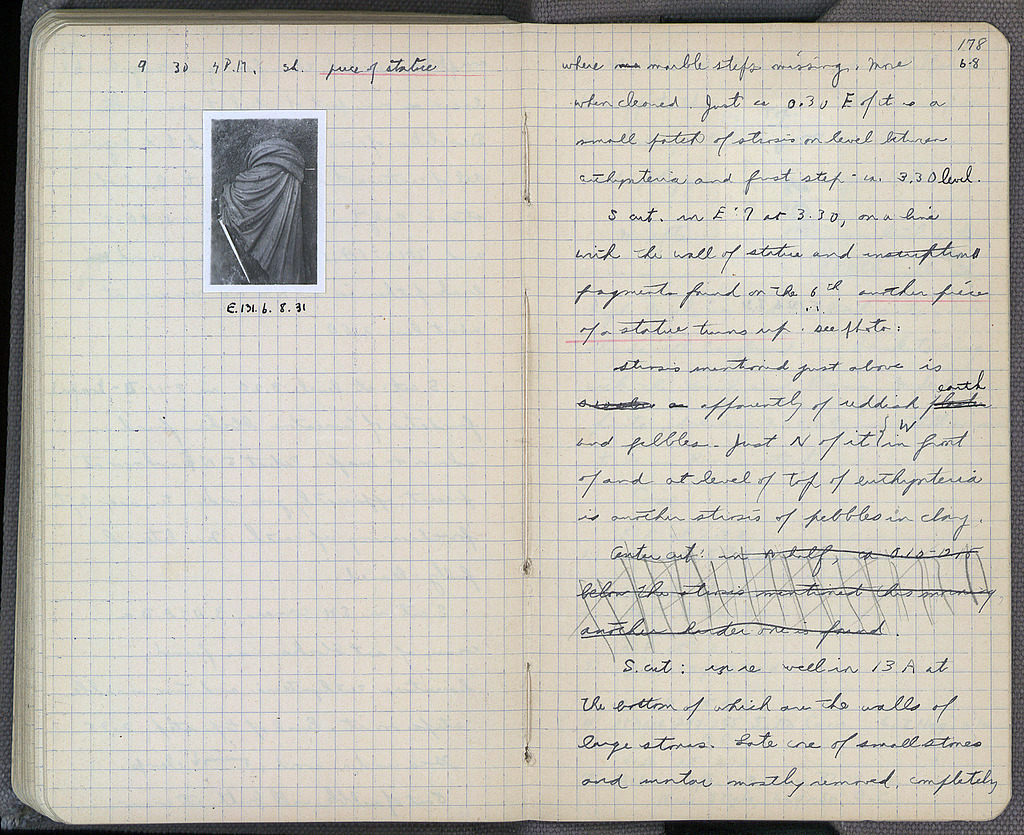 9 30 4 P.M. sd. piece of statue
E.131. 6. 8. 31
178
6-8
where marble steps missing. More
when cleared. Just ca 0.30 E of it is a
small patch of strosis on level between
euthynteria and first step - ca. 3.30 level.
S cut. in E:7 at 3.30, on a line
with the wall of statue and inscription
fragments found on the 6th another piece
of a statue turns up. see photo:
strosis mentioned just above is
apparently of reddish earth
and pebbles. Just N of it in front
W
of and at level of top of euthynteria
is another strosis of pebbles in clay.
Center cut: in N half, ca 0.10-0.15
below the strosis mentioned this morning
another harder one is found.
S. cut: in well in 13 A at
the bottom of which are the walls of
large stones. Late one of small stones
and mortar mostly removed, completely